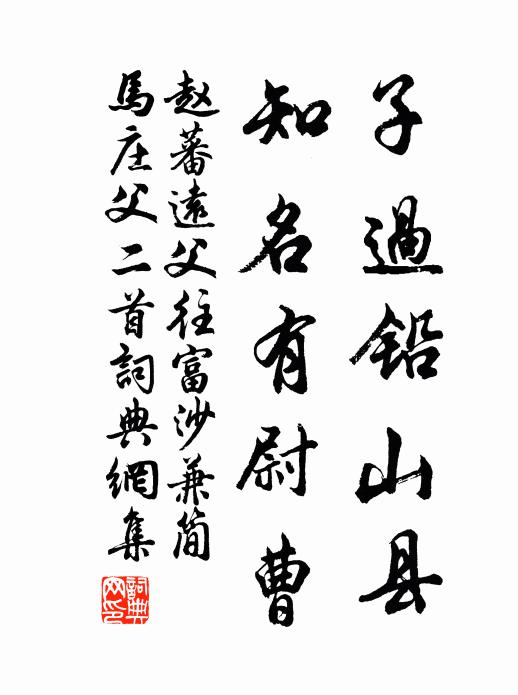 子過铅山县
知名有尉曹
赵蕃遠父往富沙兼简
馬庄父二首詞典網集
詞典网印